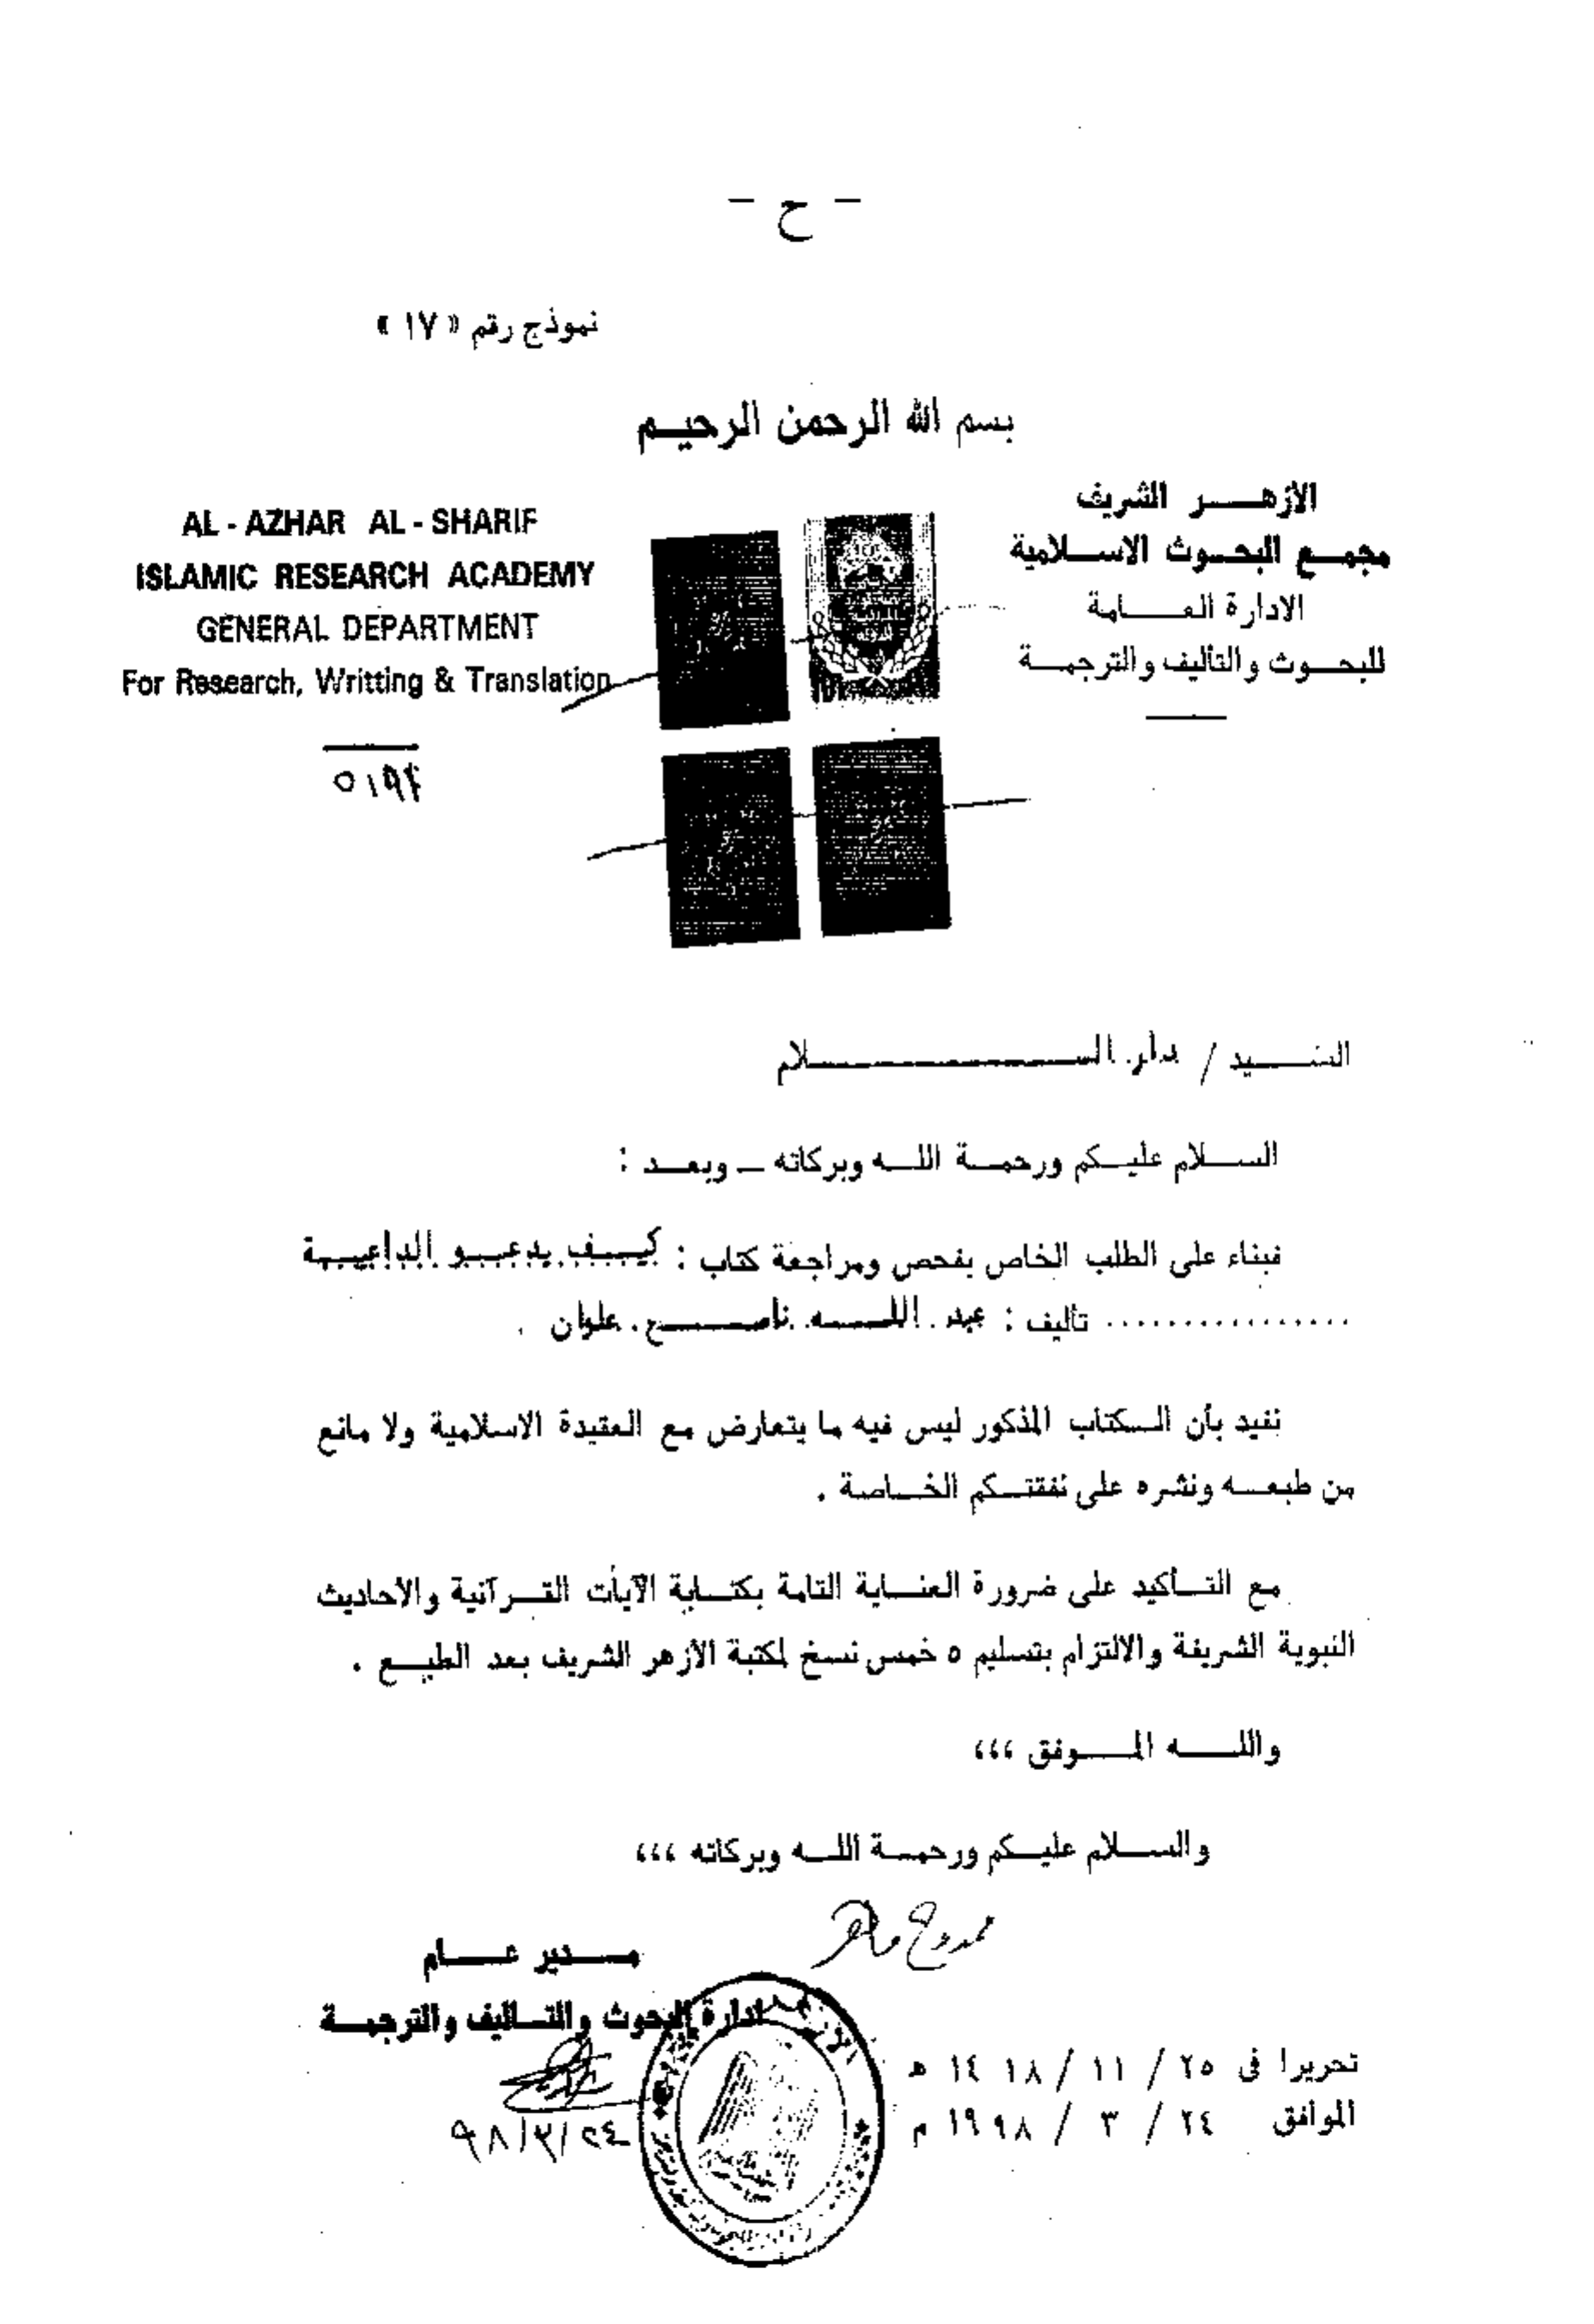 - ح -
نموذج رقم « ١٧ »
بسم الله الرحمن الرحيم
الأزهر الشريف
مجمع البحوث الاسلامية
الادارة العامة
للبحوث والتأليف والترجمة
AL - AZHAR AL - SHARIF
ISLAMIC RESEARCH ACADEMY
GENERAL DEPARTMENT
For Research, Writting & Translation
السيد / دار السلام
السلام عليكم ورحمة الله وبركاته - وبعد :
فبناء على الطلب الخاص بفحص ومراجعة كتاب : كيف يدعو الداعية
................ تأليف : عبد الله ناصح علوان .
نفيد بأن الكتاب المذكور ليس فيه ما يتعارض مع العقيدة الاسلامية ولا مانع
من طبعه ونشره على نفقتكم الخاصة .
مع التأكيد على ضرورة العناية التامة بكتابة الآيات القرآنية والأحاديث
النبوية الشريفة والالتزام بتسليم ٥ خمس نسخ لمكتبة الأزهر الشريف بعد الطبع .
والله الموفق ،،،
والسلام عليكم ورحمة الله وبركاته ،،،
ممدوح ماهر
مدير عام
ادارة البحوث والتأليف والترجمة
تحريرا فى ٢٥ / ١١ / ١٤١٨ ه
الموافق ٢٤ / ٣ / ١٩٩٨ م
٩٨/٣/٢٤